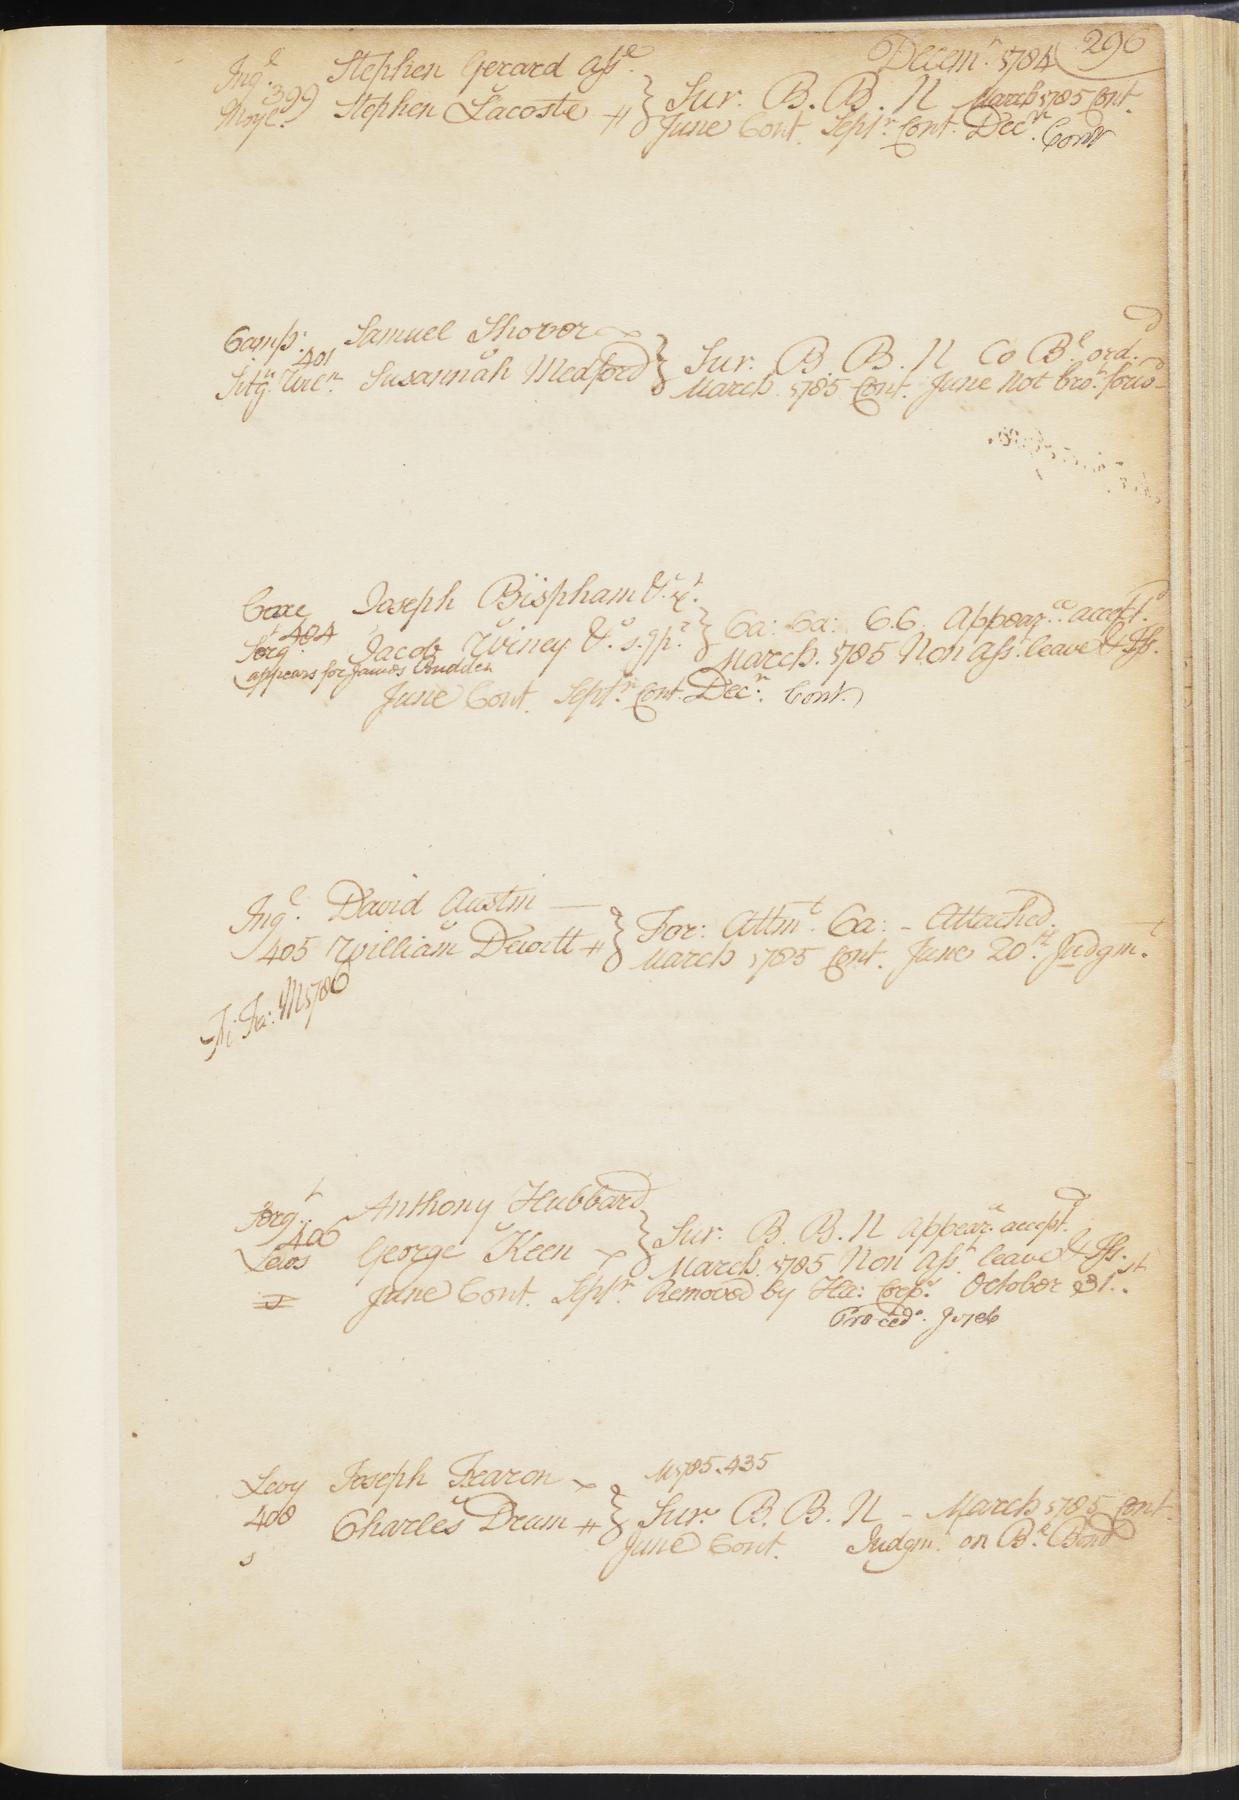 Decem.r 1784 296
Ing.l Stephen Gerard ass.e
399 Stephen Lacoste Sur. B. B. N March 1785 Cont.
Moyl.n June Cont. Sept.r Cont. Dec.r Cont
Camp. Samuel Shover
401 Susannah Medford Sur. B. B. N Co B.l ord.
March 1785 Cont. June Not bro.t
Coxe Joseph Bispham
404 Jacob Viney Ca: Sa: 66 appear.ce accept.d
Serg.t March. 1785 Non ass. leave & Iss.
appears for James Budden
June Cont. Sept.r Cont. Dec.r Cont.
Ing.l David Austin
405 William Dewitt For: Attm.t Ca: - Attached
March 1785 Cont. June 20.th Judgm.t
Fi: Fa: M 1786
Serg.t Anthony Hubbard
406 George Keen Sur. B. B. N appear.ce accept.d
Lewis March 1785 Non ass. leave & Iss.
June Cont. Sept.r Removed by Ha: Corp.s October 31.st
Proced.o J 1786
Levy Joseph Fearon M 1785. 435
408 Charles Dram Sur. B. B. N - March 1785 Cont.
s June Cont. Judgm. on B.l Bond